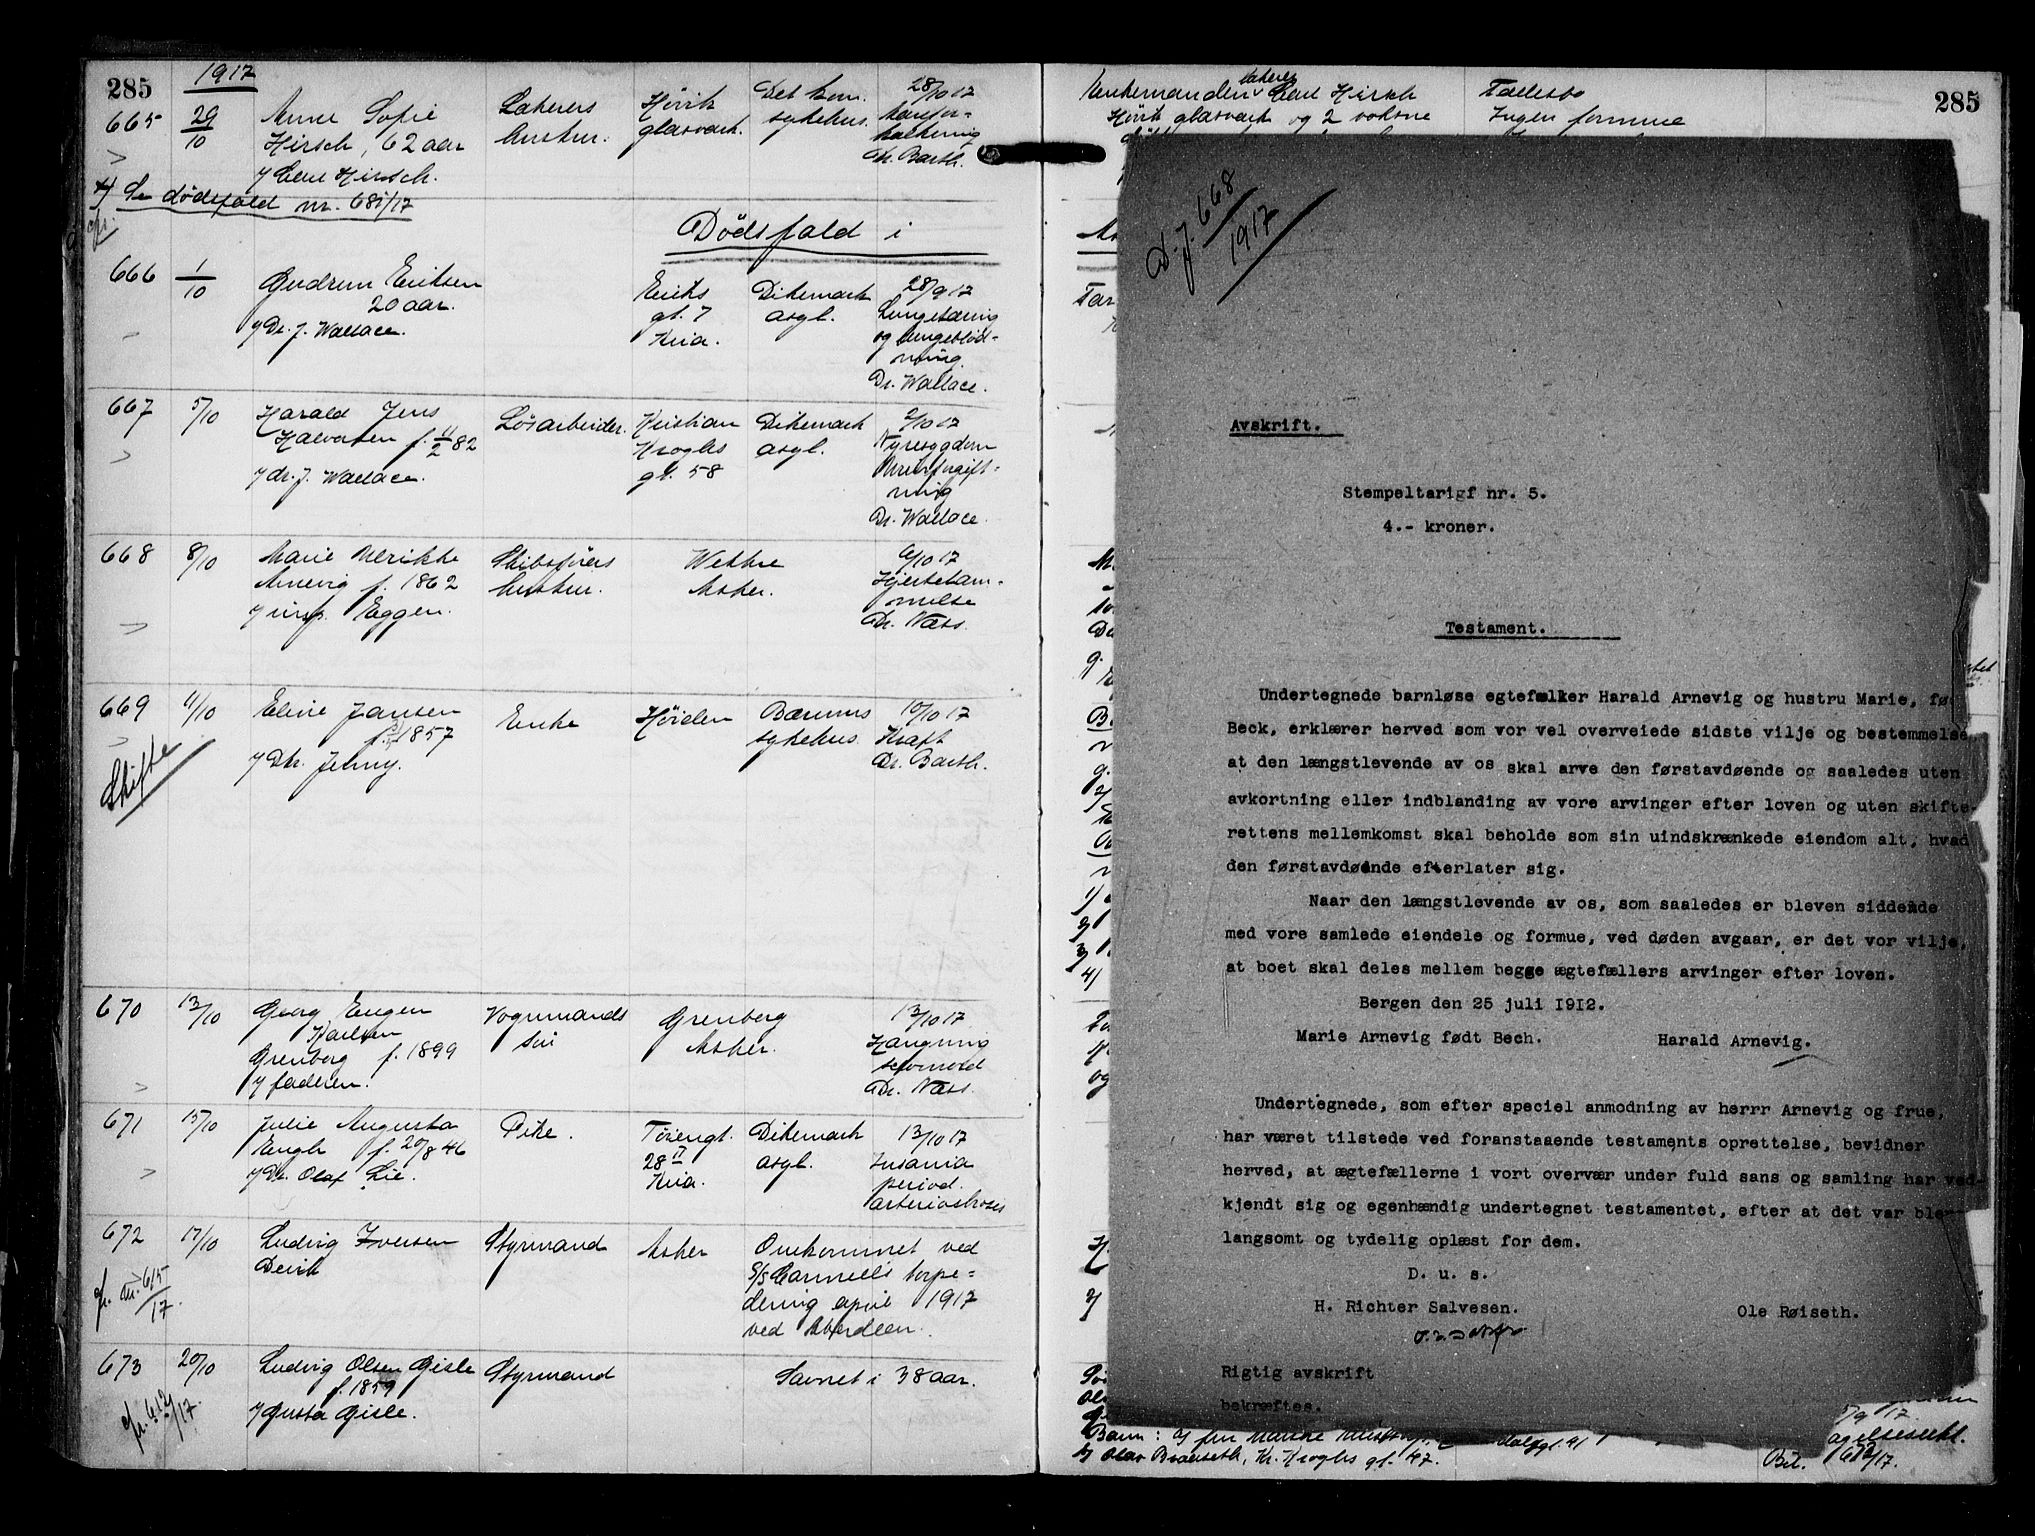 285
1917
665 29/10 Anne Sofie
Hirsch, 62 aar
v/ Carl Hirsch.
hustru.
Høvik
glasværk.
Det kom.
sykehus.
28/10 17
Dr. Barth.
x) Se dødsfald nr. 681/17
Dødsfald i
666 1/10 Gudrun Eriksen
20 aar.
v/ Dr. J. Wallace.
Eriks
gt. 7
Kria.
Dikemark
asyl.
28/9 17
Lungetæring
og lungeblød-
ning
Dr. Wallace.
667 5/10 Harald Jens
Halvorsen f. 11/2 82
v/ dr. J. Wallace.
Løsarbeider.
Kristian
Kroghs
gt. 58
Dikemark
asyl.
2/10 17
Nyresygdom
Urinforgift-
ning
Dr. Wallace.
668 8/10 Marie Ulrikke
Arnevig f. 1862
v/ insp. Eggen.
Skibsførers
hustru.
Wettre
Asker.
6/10 17
Hjertelam-
melse
Dr. Næss.
669 11/10 Eline Jansen
f. 1857
v/ Dtr. Jenny.
Skifte
Enke
Høiden
Bærums
sykehus
10/10 17
Kræft
Dr. Barth.
670 13/10 Georg Eugen
Karlsen
Grenberg f. 1899
v/ faderen.
Vognmands
søn
Grenberg
Asker.
13/10 17
Hængning
selvmord
Dr. Næss.
671 15/10 Julie Augusta
Engh f. 20/8 46
v/ Dr. Olaf Lie.
Pike.
Tøiengt.
28 II
Kria.
Dikemark
asyl.
13/10 17
Insania
period.
arteriosklrosis
672 17/10 Ludvig Iversen
Devik
cfr. nr. 615/17.
Styrmand
Asker
Omkommet ved
S/S Carmelis torpe-
dering april 1917
ved Aberdeen.
673 20/10 Ludvig Olsen Gisle
f. 1859
v/ Gusta Gisle.
cfr. 612/17.
Styrmand
Savnet i 38 aar.
Enkemanden Carl Hirsch
Høvik glasværk og 2 voksne
Fællesbo
Ingen formue
285
D. J. 668
1917
Avskrift.
Stempeltarigf nr. 5.
4.- kroner.
Testament.
Undertegnede barnløse egtefælker Harald Arnevig og hustru Marie, fø
Beck, erklærer herved som vor vel overveiede sidste vilje og bestemmelse
at den længstlevende av os skal arve den førstavdøende og saaledes uten
avkortning eller indblanding av vore arvinger efter loven og uten skifte-
rettens mellemkomst skal beholde som sin uindskrænkede eiendom alt, hvad
den førstavdøende efterlater sig.
Naar den længstlevende av os, som saaledes er bleven siddende
med vore samlede eiendele og formue, ved døden avgaar, er det vor vilje,
at boet skal deles mellem begge ægtefællers arvinger efter loven.
Bergen den 25 juli 1912.
Marie Arnevig født Bech. Harald Arnevig.
Undertegnede, som efter speciel anmodning av herrr Arnevig og frue,
har været tilstede ved foranstaaende testaments oprettelse, bevidner
herved, at ægtefællerne i vort overvær under fuld sans og samling har ved-
kjendt sig og egenhændig undertegnet testamentet, efter at det var blev
langsomt og tydelig oplæst for dem.
D. u. s.
H. Richter Salvesen. Ole Røiseth.
Rigtig avskrift
bekræftes.
Barn:
Kr. Kroghs gt. 47.
Bil. 612/17.